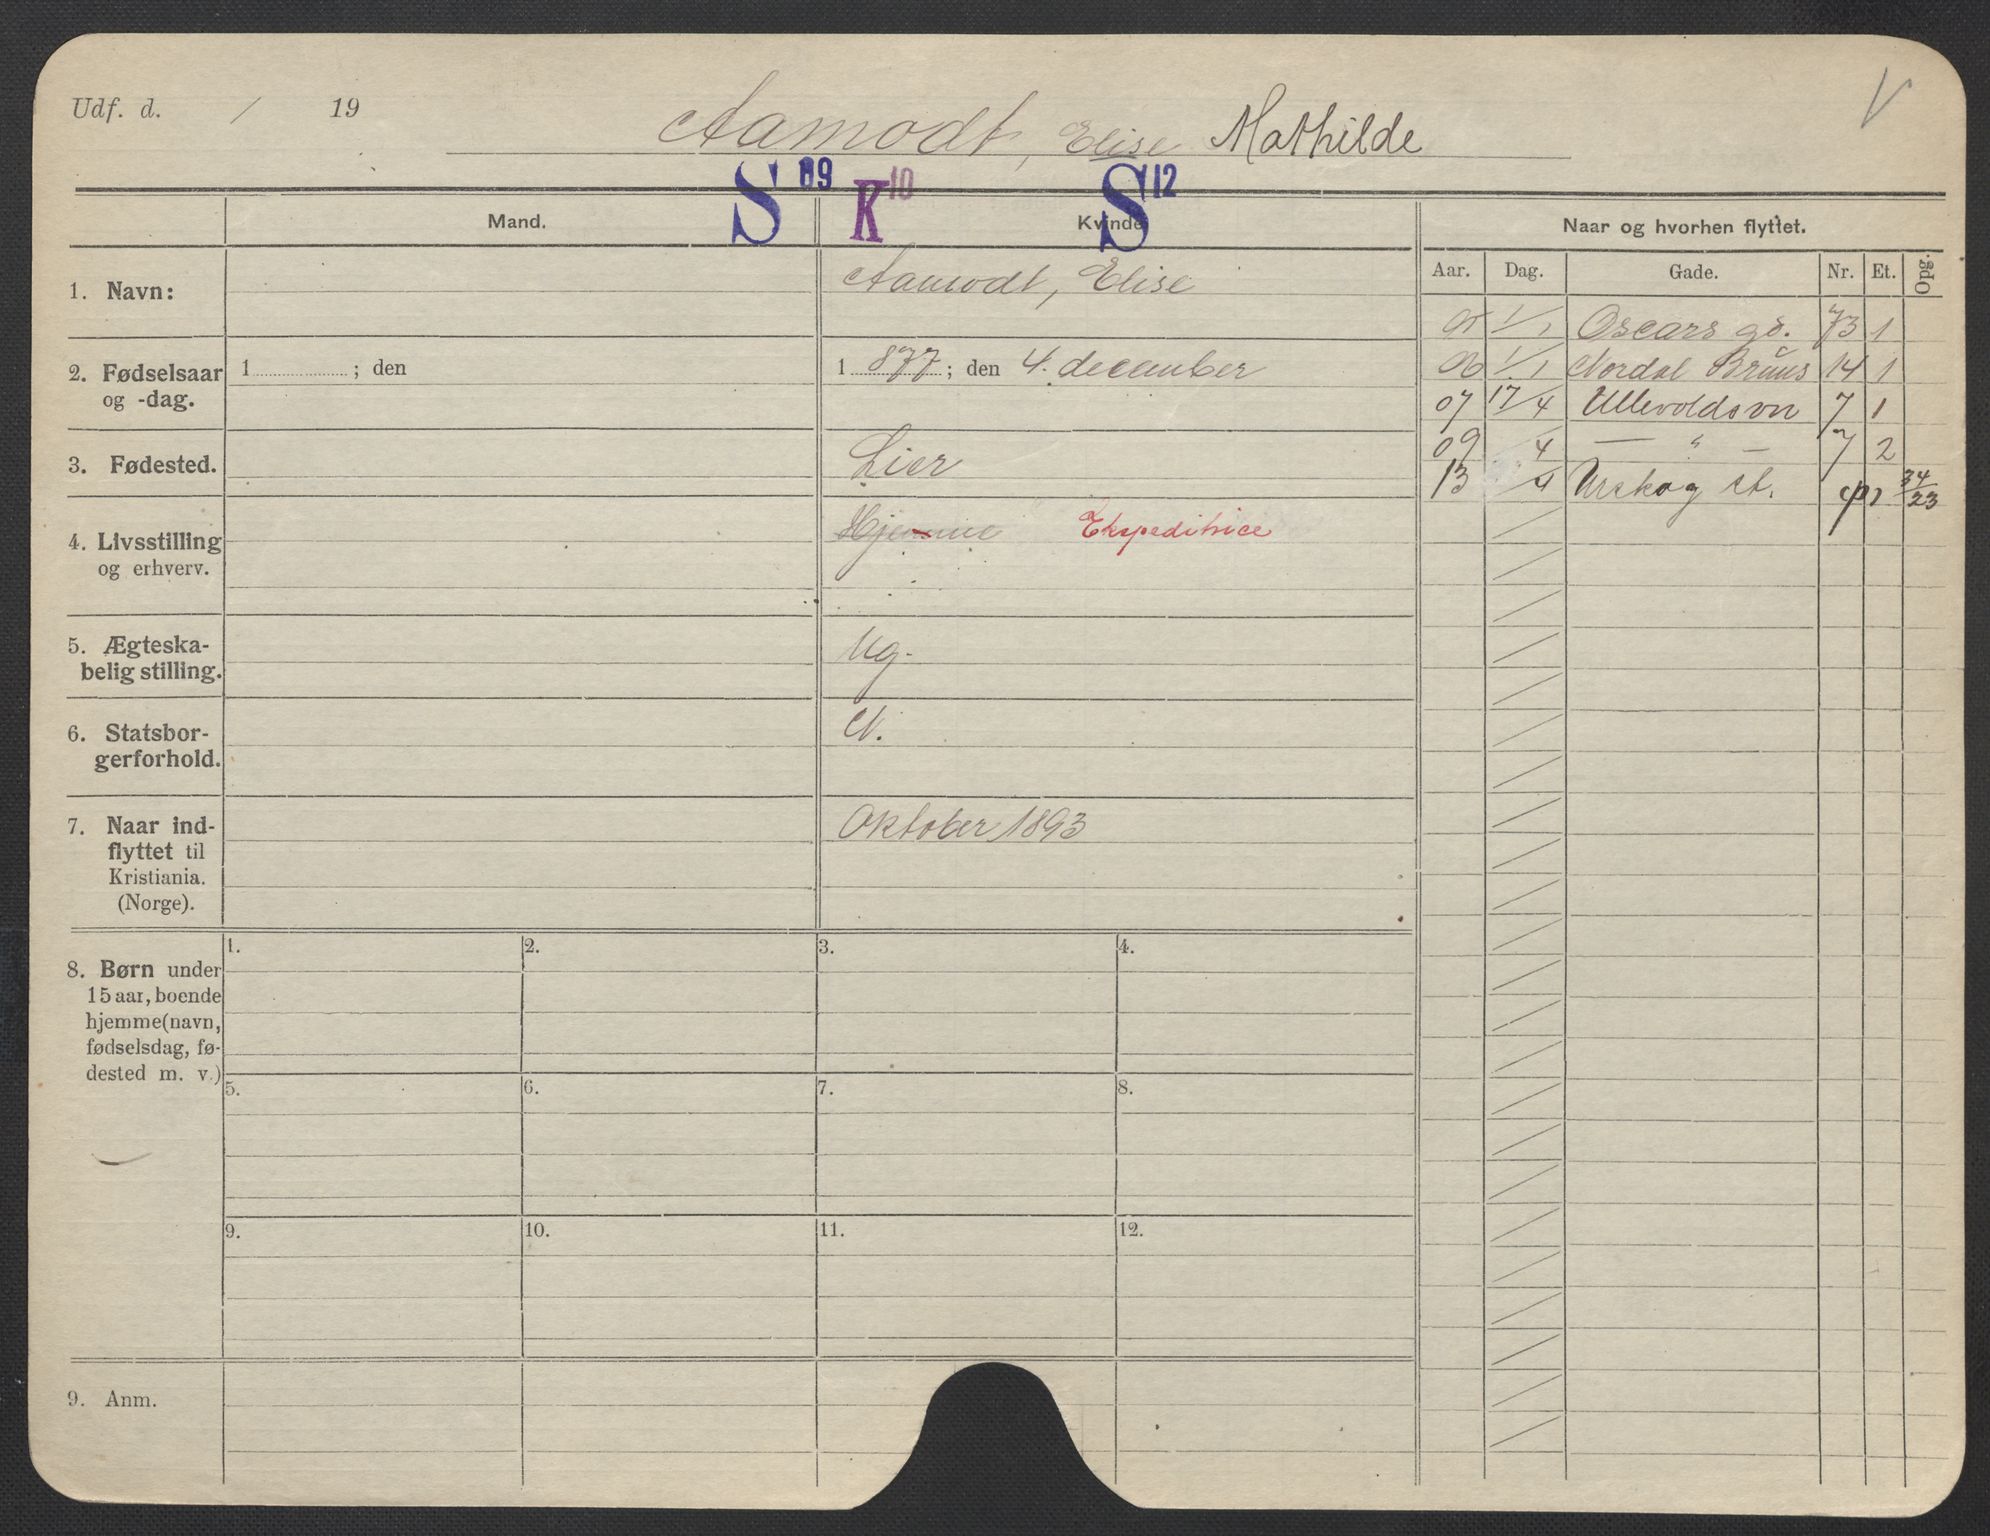 Udf. d. / 19
Aamodt, Elise Mathilde
V
S 09 K 10 S 12
Mand. Kvinde Naar og hvorhen flyttet.
Aar. Dag. Gade. Nr. Et. Opg.
1. Navn: Aamodt, Elise
2. Fødselsaar 1 ; den 1 877 ; den 4. december
og -dag.
3. Fødested. Lier
4. Livsstilling Hjemme Ekspeditrice
og erhverv.
5. Ægteska-
belig stilling. Ug.
6. Statsbor-
gerforhold. N.
7. Naar ind-
flyttet til
Kristiania.
(Norge). Oktober 1893
8. Børn under
15 aar, boende
hjemme (navn,
fødselsdag, fø-
dested m. v.)
1. 2. 3. 4.
5. 6. 7. 8.
9. 10. 11. 12.
9. Anm.
1/1 Oscars gd. 73 1
06 1/1 Nordal Bruns 14 1
07 17/4 Ullevoldsvn 7 1
09 /4 — " — 7 2
13 /4 Urskog st. 34/23